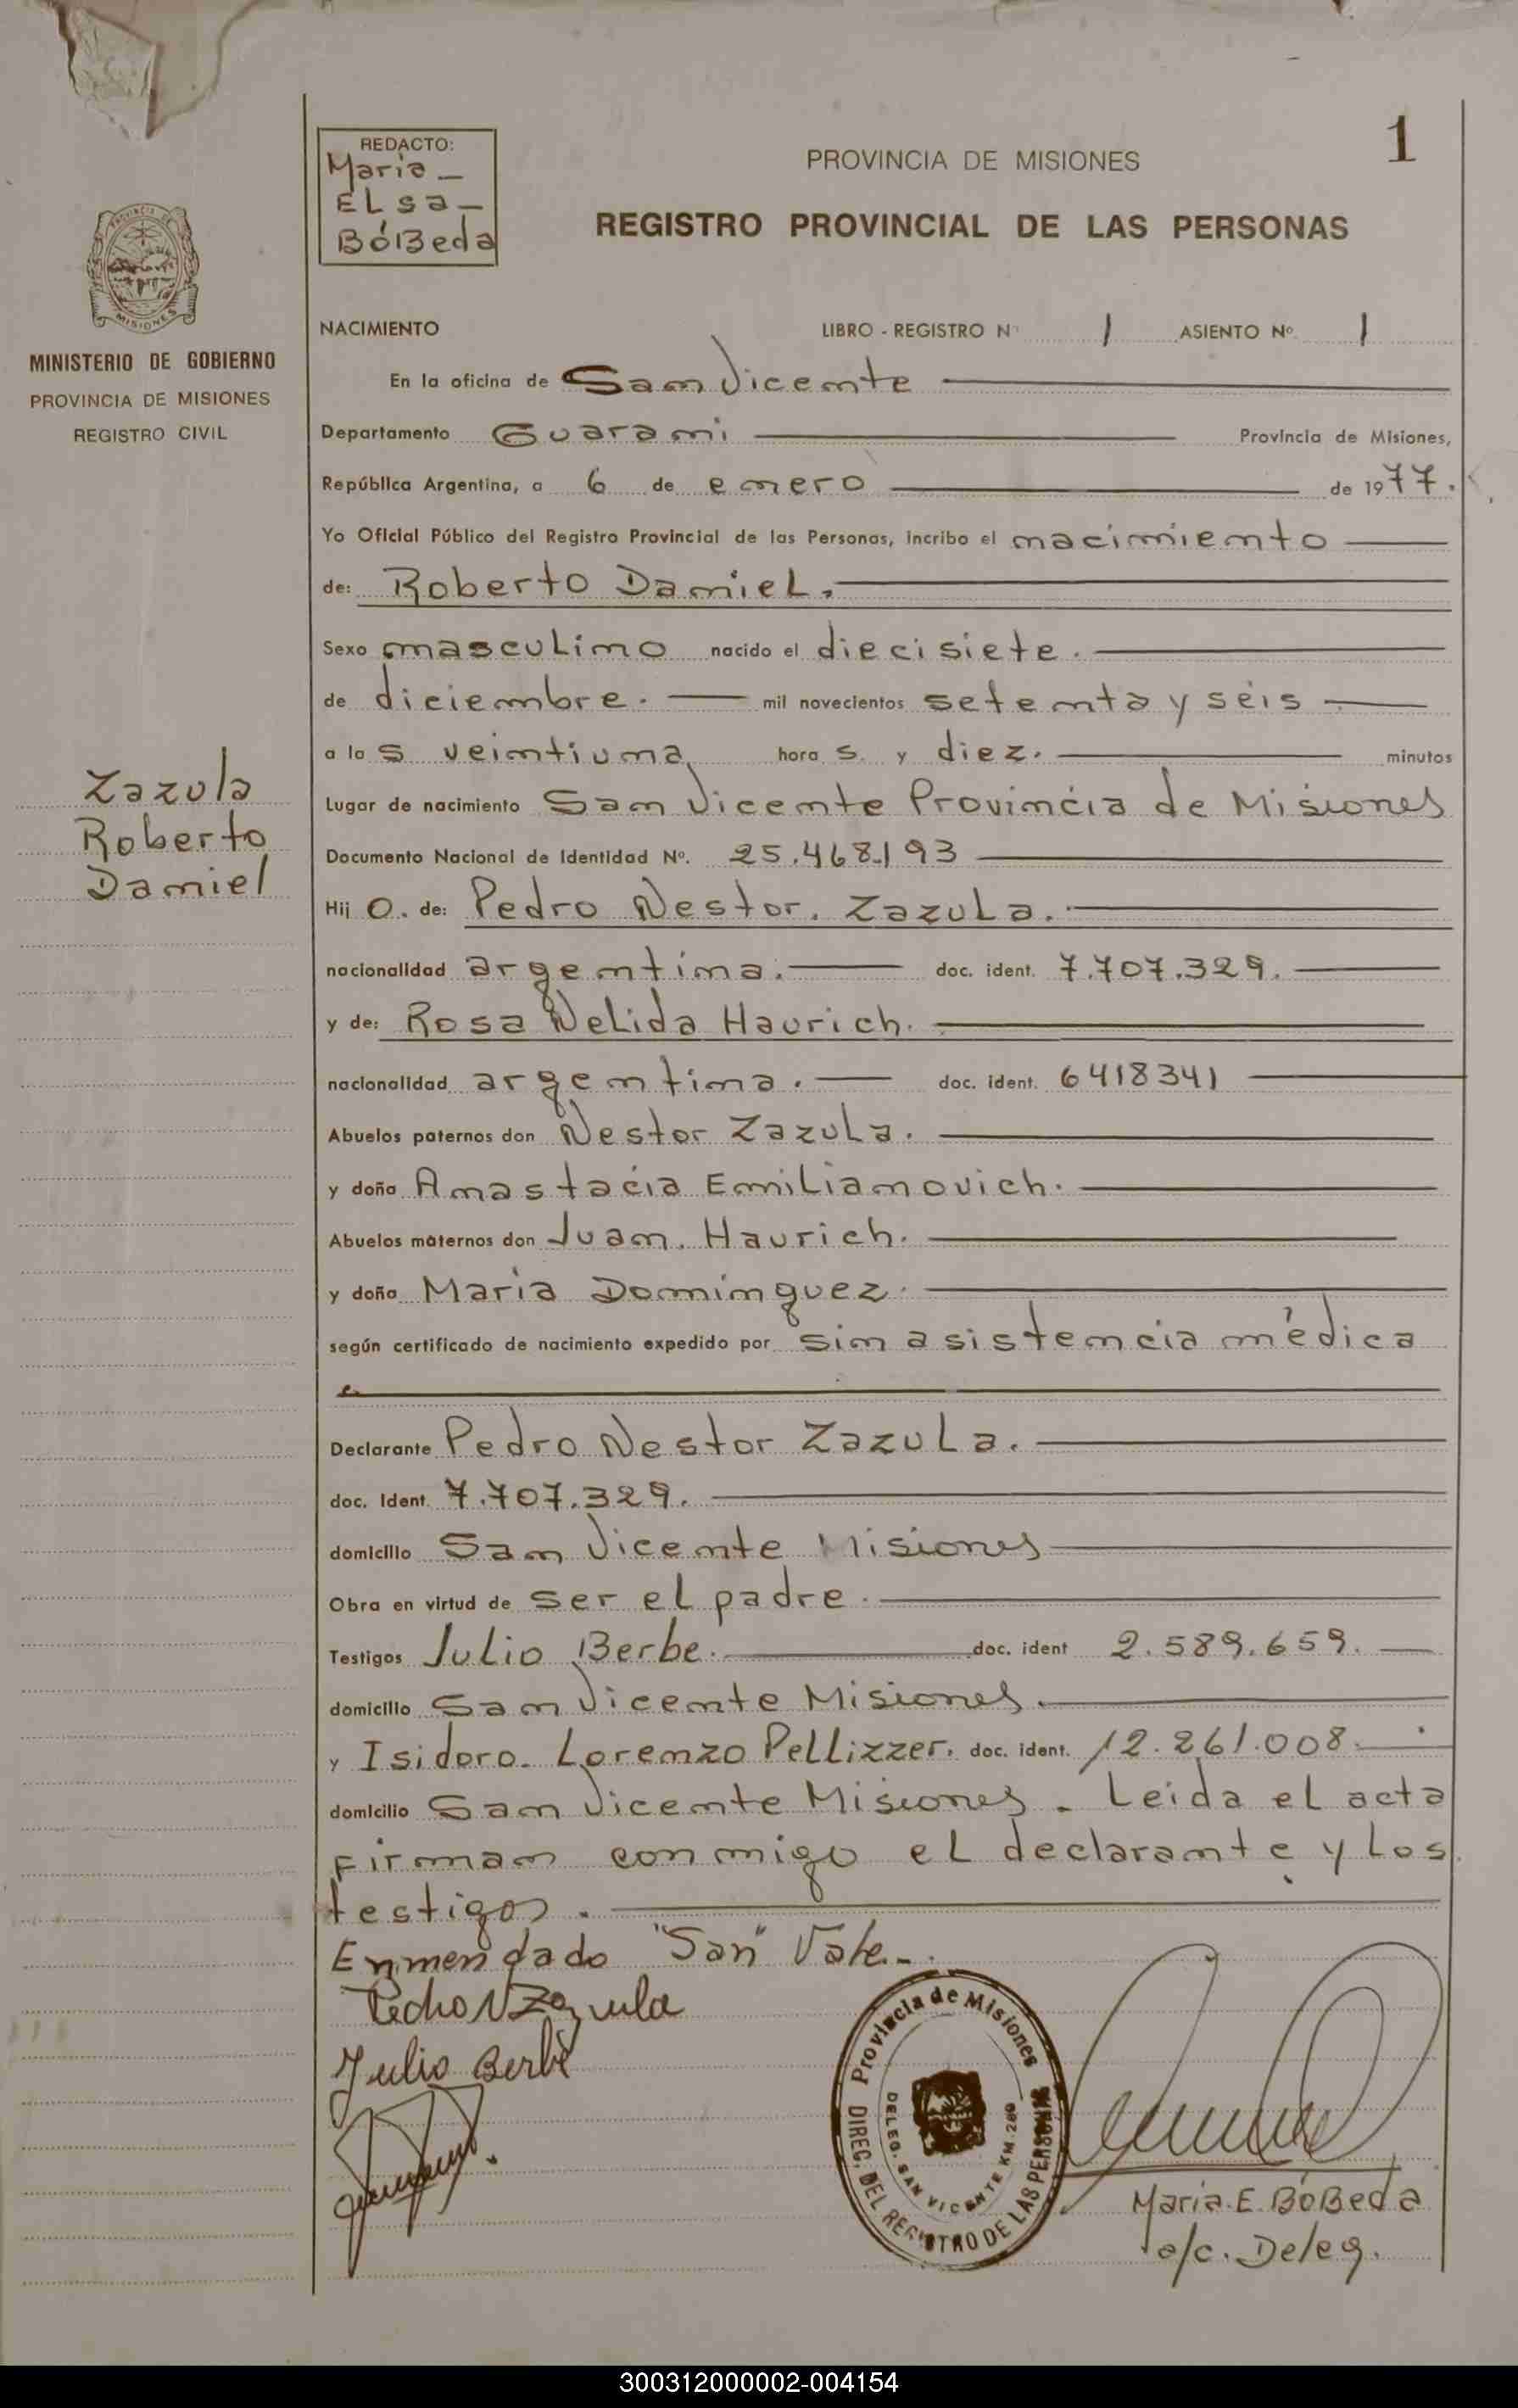 REDACTO:
Maria
ELsa
BóBeda
PROVINCIA DE MISIONES
1
REGISTRO PROVINCIAL DE LAS PERSONAS
PROVINCIA DE MISIONES
MINISTERIO DE GOBIERNO
PROVINCIA DE MISIONES
REGISTRO CIVIL
NACIMIENTO LIBRO - REGISTRO Nº 1 ASIENTO Nº 1
En la oficina de San Vicente
Departamento Guarani Provincia de Misiones,
República Argentina, a 6 de enero de 1977.
Yo Oficial Público del Registro Provincial de las Personas, incribo el nacimiento
de: Roberto Daniel.
Sexo masculino nacido el diecisiete.
de diciembre. mil novecientos setenta y séis
a las veintiuna hora s y diez. minutos
Zazula
Roberto
Daniel
Lugar de nacimiento San Vicente Provincia de Misiones
Documento Nacional de Identidad Nº. 25.468.193
Hij o. de: Pedro Nestor. Zazula.
nacionalidad argentina. doc. ident. 7.707.329.
y de: Rosa Nelida Haurich.
nacionalidad argentina. doc. ident. 6418341
Abuelos paternos don Nestor Zazula.
y doña Anastacia Emilianovich.
Abuelos maternos don Juan. Haurich.
y doña Maria Dominguez.
según certificado de nacimiento expedido por sin asistencia médica
Declarante Pedro Nestor Zazula.
doc. Ident. 7.707.329.
domicilio San Vicente Misiones
Obra en virtud de ser el padre.
Testigos Julio Berbe. doc. ident 2.589.659.
domicilio San Vicente Misiones.
y Isidoro. Lorenzo Pellizzer. doc. ident. 12.261.008.
domicilio San Vicente Misiones. Leida el acta
firman conmigo el declarante y los
testigos.
Enmendado "San" Vale.
Pedro N Zazula
Julio Berbé
Provincia de Misiones
DIREC. DEL REGISTRO DE LAS PERSONAS
DELEG. SAN VICENTE KM. 260
Maria. E. BóBeda
a/c. Deleg.
300312000002-004154